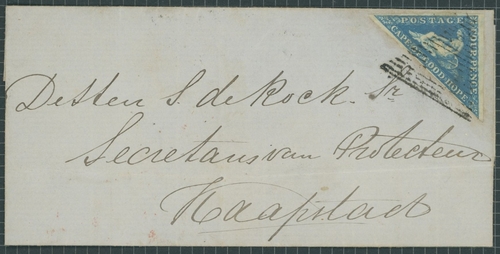 POSTAGE
CAPE OF GOOD HOPE
FOUR PENCE
De Heer S. de Kock. Sr
Secretaris van Protecteur
Kaapstad